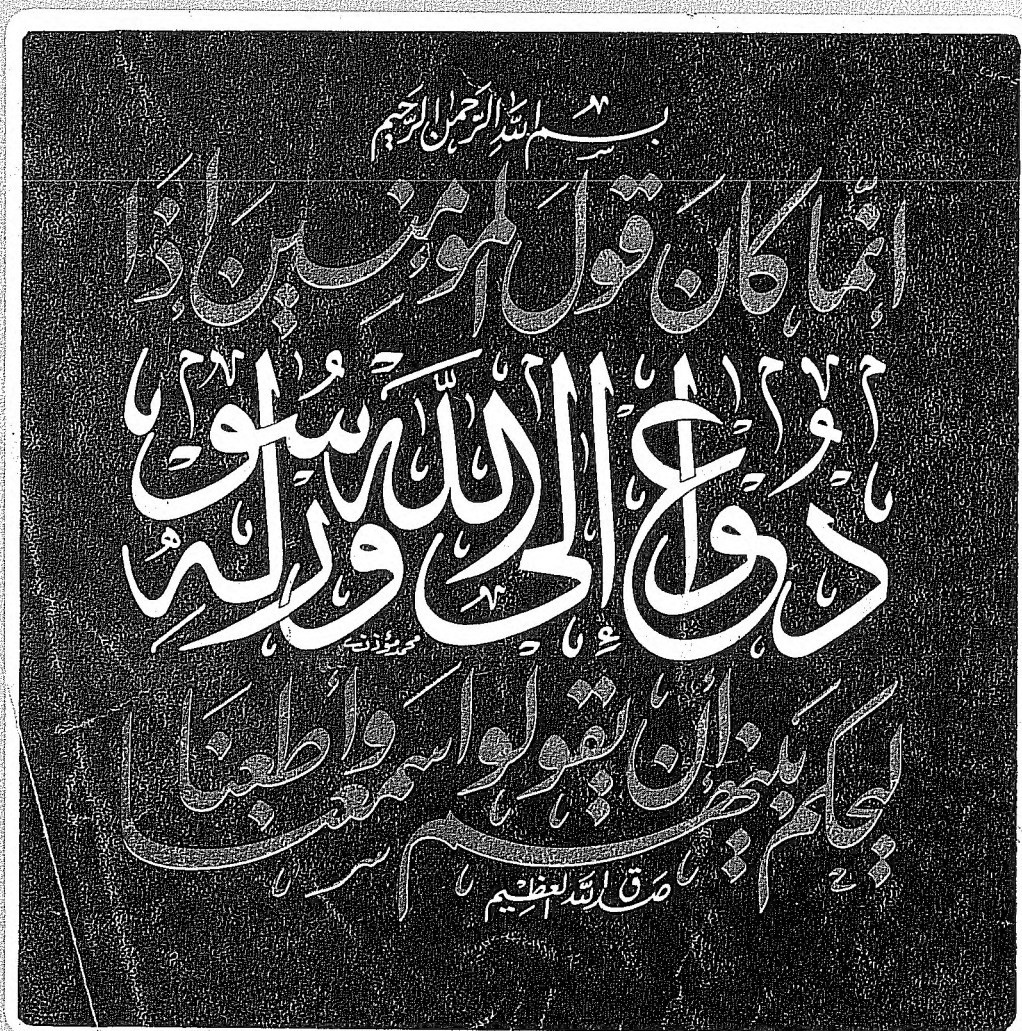 بسم الله الرحمن الرحيم
إنما كان قول المؤمنين إذا
دعوا إلى الله ورسوله
محمد مؤذن
ليحكم بينهم أن يقولوا سمعنا وأطعنا
صدق الله العظيم